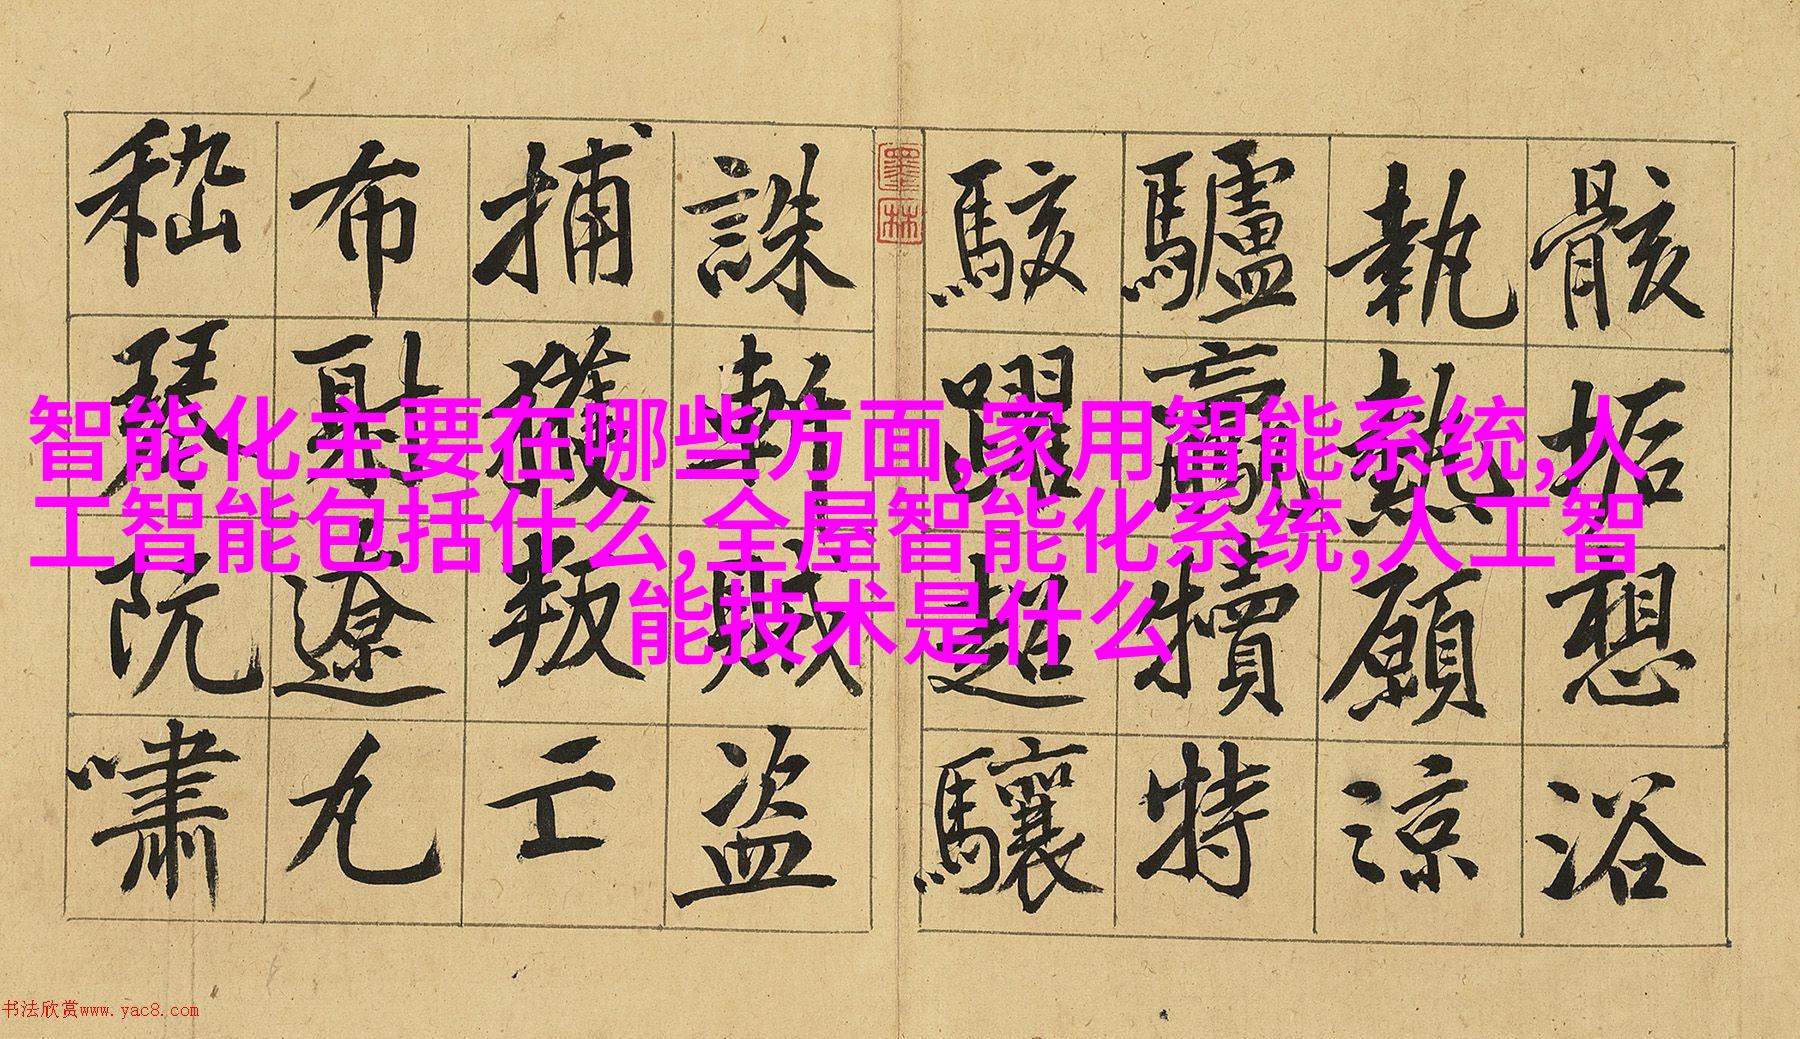 骸垢想浴
執熱願涼
驢犢特
駭躍超驤
墨林
誅斬賊盜
捕獲叛亡
布遼丸
嵇琴阮嘯
智能化主要在哪些方面,家用智能系统,人
工智能包括什么,全屋智能化系统,人工智
能技术是什么
书法欣赏www.yac8.com